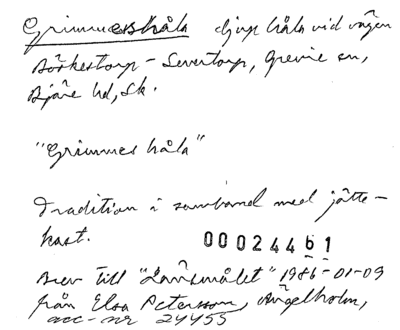 Grimmeshåla djup håla vid vägen
Böskestorp - Severtorp, Grevie sn,
Bjäre hd, Sk.
"Grimmes håla"
Tradition i samband med jätte-
kast.
00024461
Brev till "Landsmålet" 1986-01-09
från Elsa Petersson, Ängelholm,
acc-nr 24455